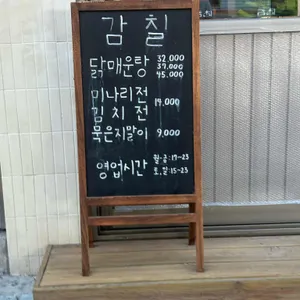 감칠
닭매운탕 32,000
37,000
45,000
미나리전
김치전 14,000
묵은지말이 9,000
영업시간 월-금:17-23
토,일:15-23